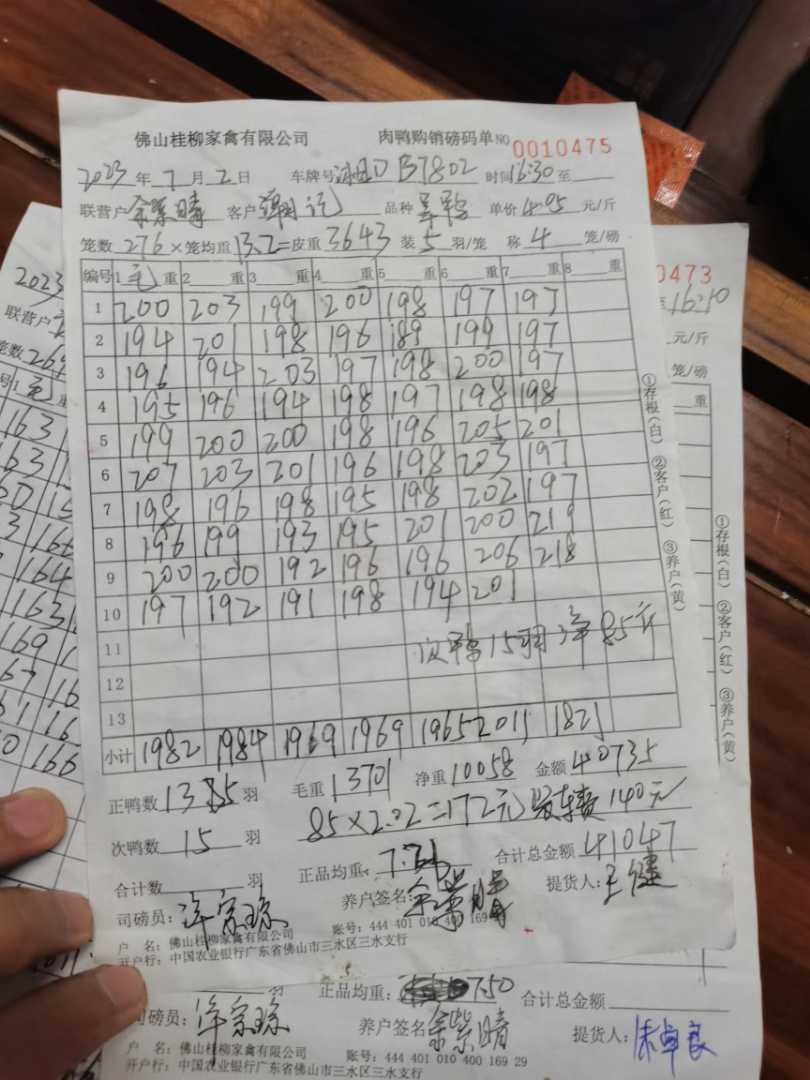 佛山桂柳家禽有限公司 肉鸭购销磅码单 NO 0010475
2023 年 7 月 2 日 车牌号 B7802 时间 16:30 至
联营户 余紫晴 客户 品种 单价 4.05 元/斤
笼数 276 × 笼均重 13.2 = 皮重 3643 装 5 羽/笼 称 4 笼/磅
编号 1 毛 重 2 重 3 重 4 重 5 重 6 重 7 重 8 重
1 200 203 199 200 198 197 197
2 194 201 198 196 189 199 197
3 196 194 203 197 198 200 197
4 195 196 194 198 197 198 198
5 199 200 200 198 196 205 201
6 207 203 201 196 198 203 197
7 198 196 198 195 198 202 197
8 196 199 193 195 201 200 219
9 200 200 192 196 196 206 218
10 197 192 191 198 194 201
11 次鸭15羽 净85斤
12
13
小计 1982 1984 1969 1969 1965 2011 1821
正鸭数 1385 羽 毛重 13701 净重 10058 金额 40735
85×2.02=172元 发车费 140元
次鸭数 15 羽 合计总金额 41047
合计数 羽 正品均重: 提货人: 王健
司磅员: 许宗琼 养户签名: 余紫晴
户 名: 佛山桂柳家禽有限公司 账号: 444 401 010 400 169
开户行: 中国农业银行广东省佛山市三水区三水支行
①存根(白) ②客户(红) ③养户(黄)
2023
联营户
笼数 269
号 1 毛 重
163
163
164
163
169
166
0473
至 16:10
元/斤
笼/磅
重
①存根(白) ②客户(红) ③养户(黄)
羽 正品均重: 7.50 合计总金额
司磅员: 许宗琼 养户签名: 余紫晴 提货人: 朱卓良
户 名: 佛山桂柳家禽有限公司 账号: 444 401 010 400 169 29
开户行: 中国农业银行广东省佛山市三水区三水支行